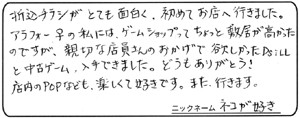 折込チラシが とても面白く、初めてお店へ行きました。
アラフォー♀の私には、ゲームショップって ちょっと敷居が高かった
のですが、親切な店員さんのおかげで 欲しかった DSiLL
と中古ゲーム、入手できました。どうもありがとう!
店内のPOPなども、楽しくて好きです。また、行きます。
ニックネーム ネコが好き